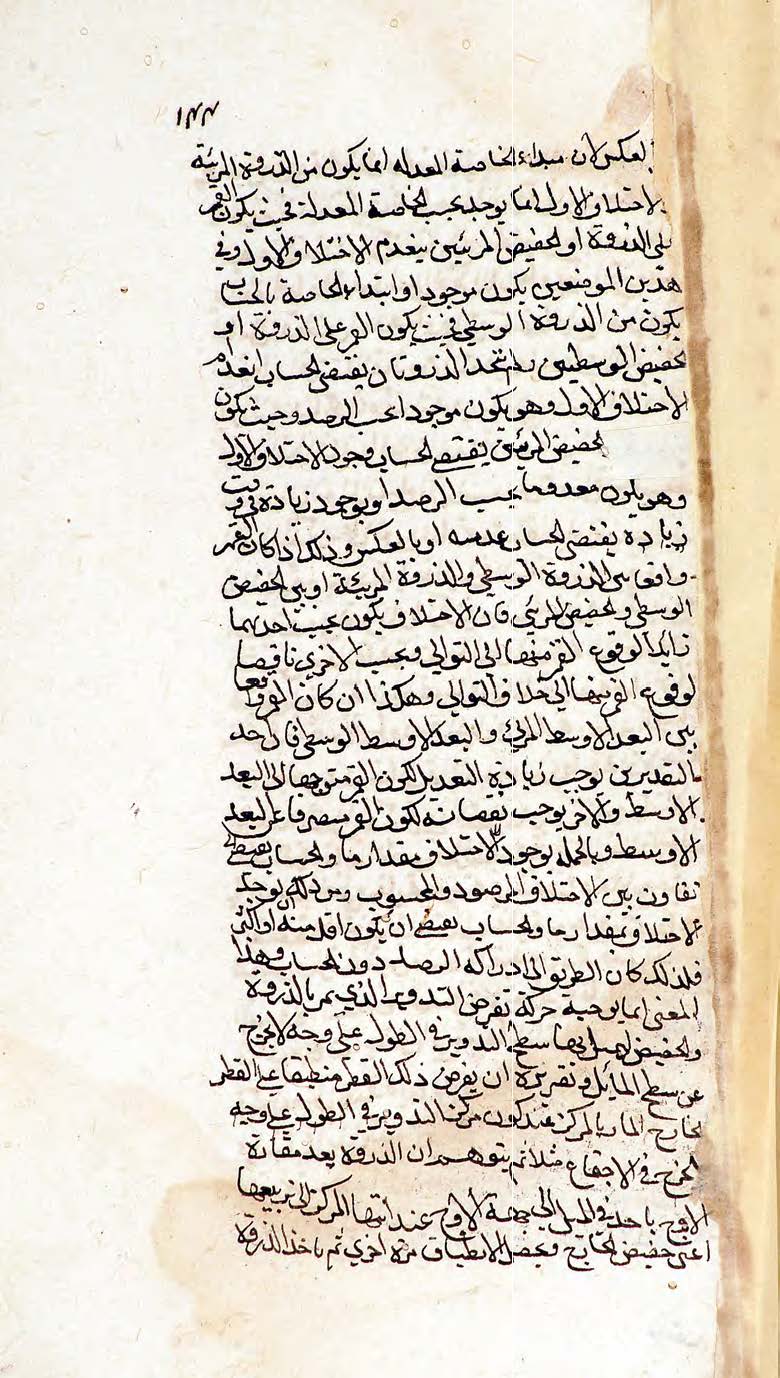 ١٤٤
لعكس لان مبداء الخاصة المعدلة انما يكون من الذروة المرئية
الاختلاف الاول انما يوجد بحسب الخاصة المعدلة فحيث يكون القمر
على الذروة او الحضيض المرئيين ينعدم الاختلاف الاول وفي
هذين الموضعين يكون موجودا وابتداء الخاصة بالحساب
يكون من الذروة الوسطى فحيث يكون القمر على الذروة او
الحضيض الوسطيين ولم تتحد الذروتان يقتضي الحساب انعدام
الاختلاف الاول وهو يكون موجودا بحسب الرصد وحيث يكون
الحضيض المرئيين يقتضي الحساب وجود الاختلاف الاول
وهو يكون معدوما بحسب الرصد او بوجود زيادة في وقت
زيادة يقتضي الحساب عدمه او بالعكس وذلك اذا كان القمر
واقعا بين الذروة الوسطى والذروة المرئية او بين الحضيض
الوسطي والحضيض المرئي فان الاختلاف يكون بحسب احديهما
زايدا لوقوع القمر منها الى التوالي وبحسب الاخرى ناقصا
لوقوع القمر منها الى خلاف التوالي وهكذا ان كان القمر واقعا
بين البعد الاوسط المرئي والبعد الاوسط الوسطى فان احد
التقديرين يوجب زيادة التعديل لكون القمر متوجها الى البعد
الاوسط والاخر يوجب نقصانه لكون القمر منصرفا عن البعد
الاوسط وبالجملة بوجود الاختلاف مقدار ما والحساب يعطي
تفاوت بين الاختلاف المرصود والمحسوب ومن ذلك يوجد
الاختلاف بمقدار ما والحساب يعطي ان يكون اقل منه او اكثر
فلذلك كان الطريق الى ادراكه الرصد دون الحساب وهذا
المعنى انما يوجبه حركة تفرض التدوير الذي يمر بالذروة
والحضيض سطح التدوير في الطول على وجه لا يخرج
عن سطح المايل وتقريره ان يفرض ذلك القطر منطبقا على القطر
الخارج المار بالمركز عند كون مركز التدوير في الطول على وجه
في الاجتماع مثلا ثم يتوهم ان الذروة بعد مفارقة
الاوج ياخذ في الميل الى جهة الاوج عند انتهاء المركز الى تربيعها
اعني حضيض الخارج ويحصل الانطباق مرة اخرى ثم ياخذ الذروة